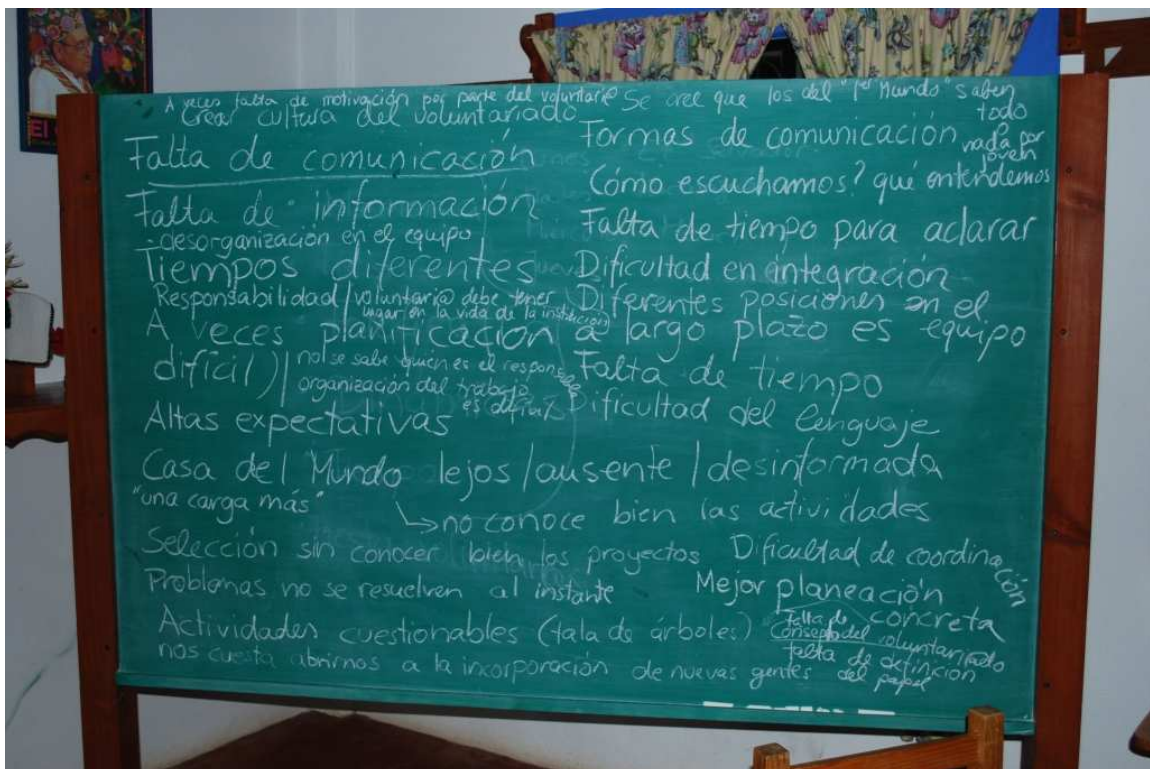 El
A veces falta de motivación por parte del voluntari@
Crear cultura del voluntariado
Falta de comunicación
Falta de información
-desorganización en el equipo
Tiempos diferentes
Responsabilidad / voluntari@ debe tener
lugar en la vida de la institución
A veces planificación a largo plazo es
difícil)
no se sabe quién es el responsable
organización del trabajo
es difícil
Altas expectativas
Casa del Mundo lejos / ausente / desinformada
"una carga más"
↳ no conoce bien las actividades
Selección sin conocer bien los proyectos
Problemas no se resuelven al instante
Actividades cuestionables (tala de árboles)
nos cuesta abrirnos a la incorporación de nuevas gentes
Se cree que los del "1er Mundo" saben
todo
nada por
joven
Formas de comunicación
Cómo escuchamos? qué entendemos
Falta de tiempo para aclarar
Dificultad en integración
Diferentes posiciones en el
equipo
Falta de tiempo
Dificultad del lenguaje
Dificultad de coordinación
Mejor planeación
concreta
Falta de
Consepto del voluntariado
falta de definición
del papel